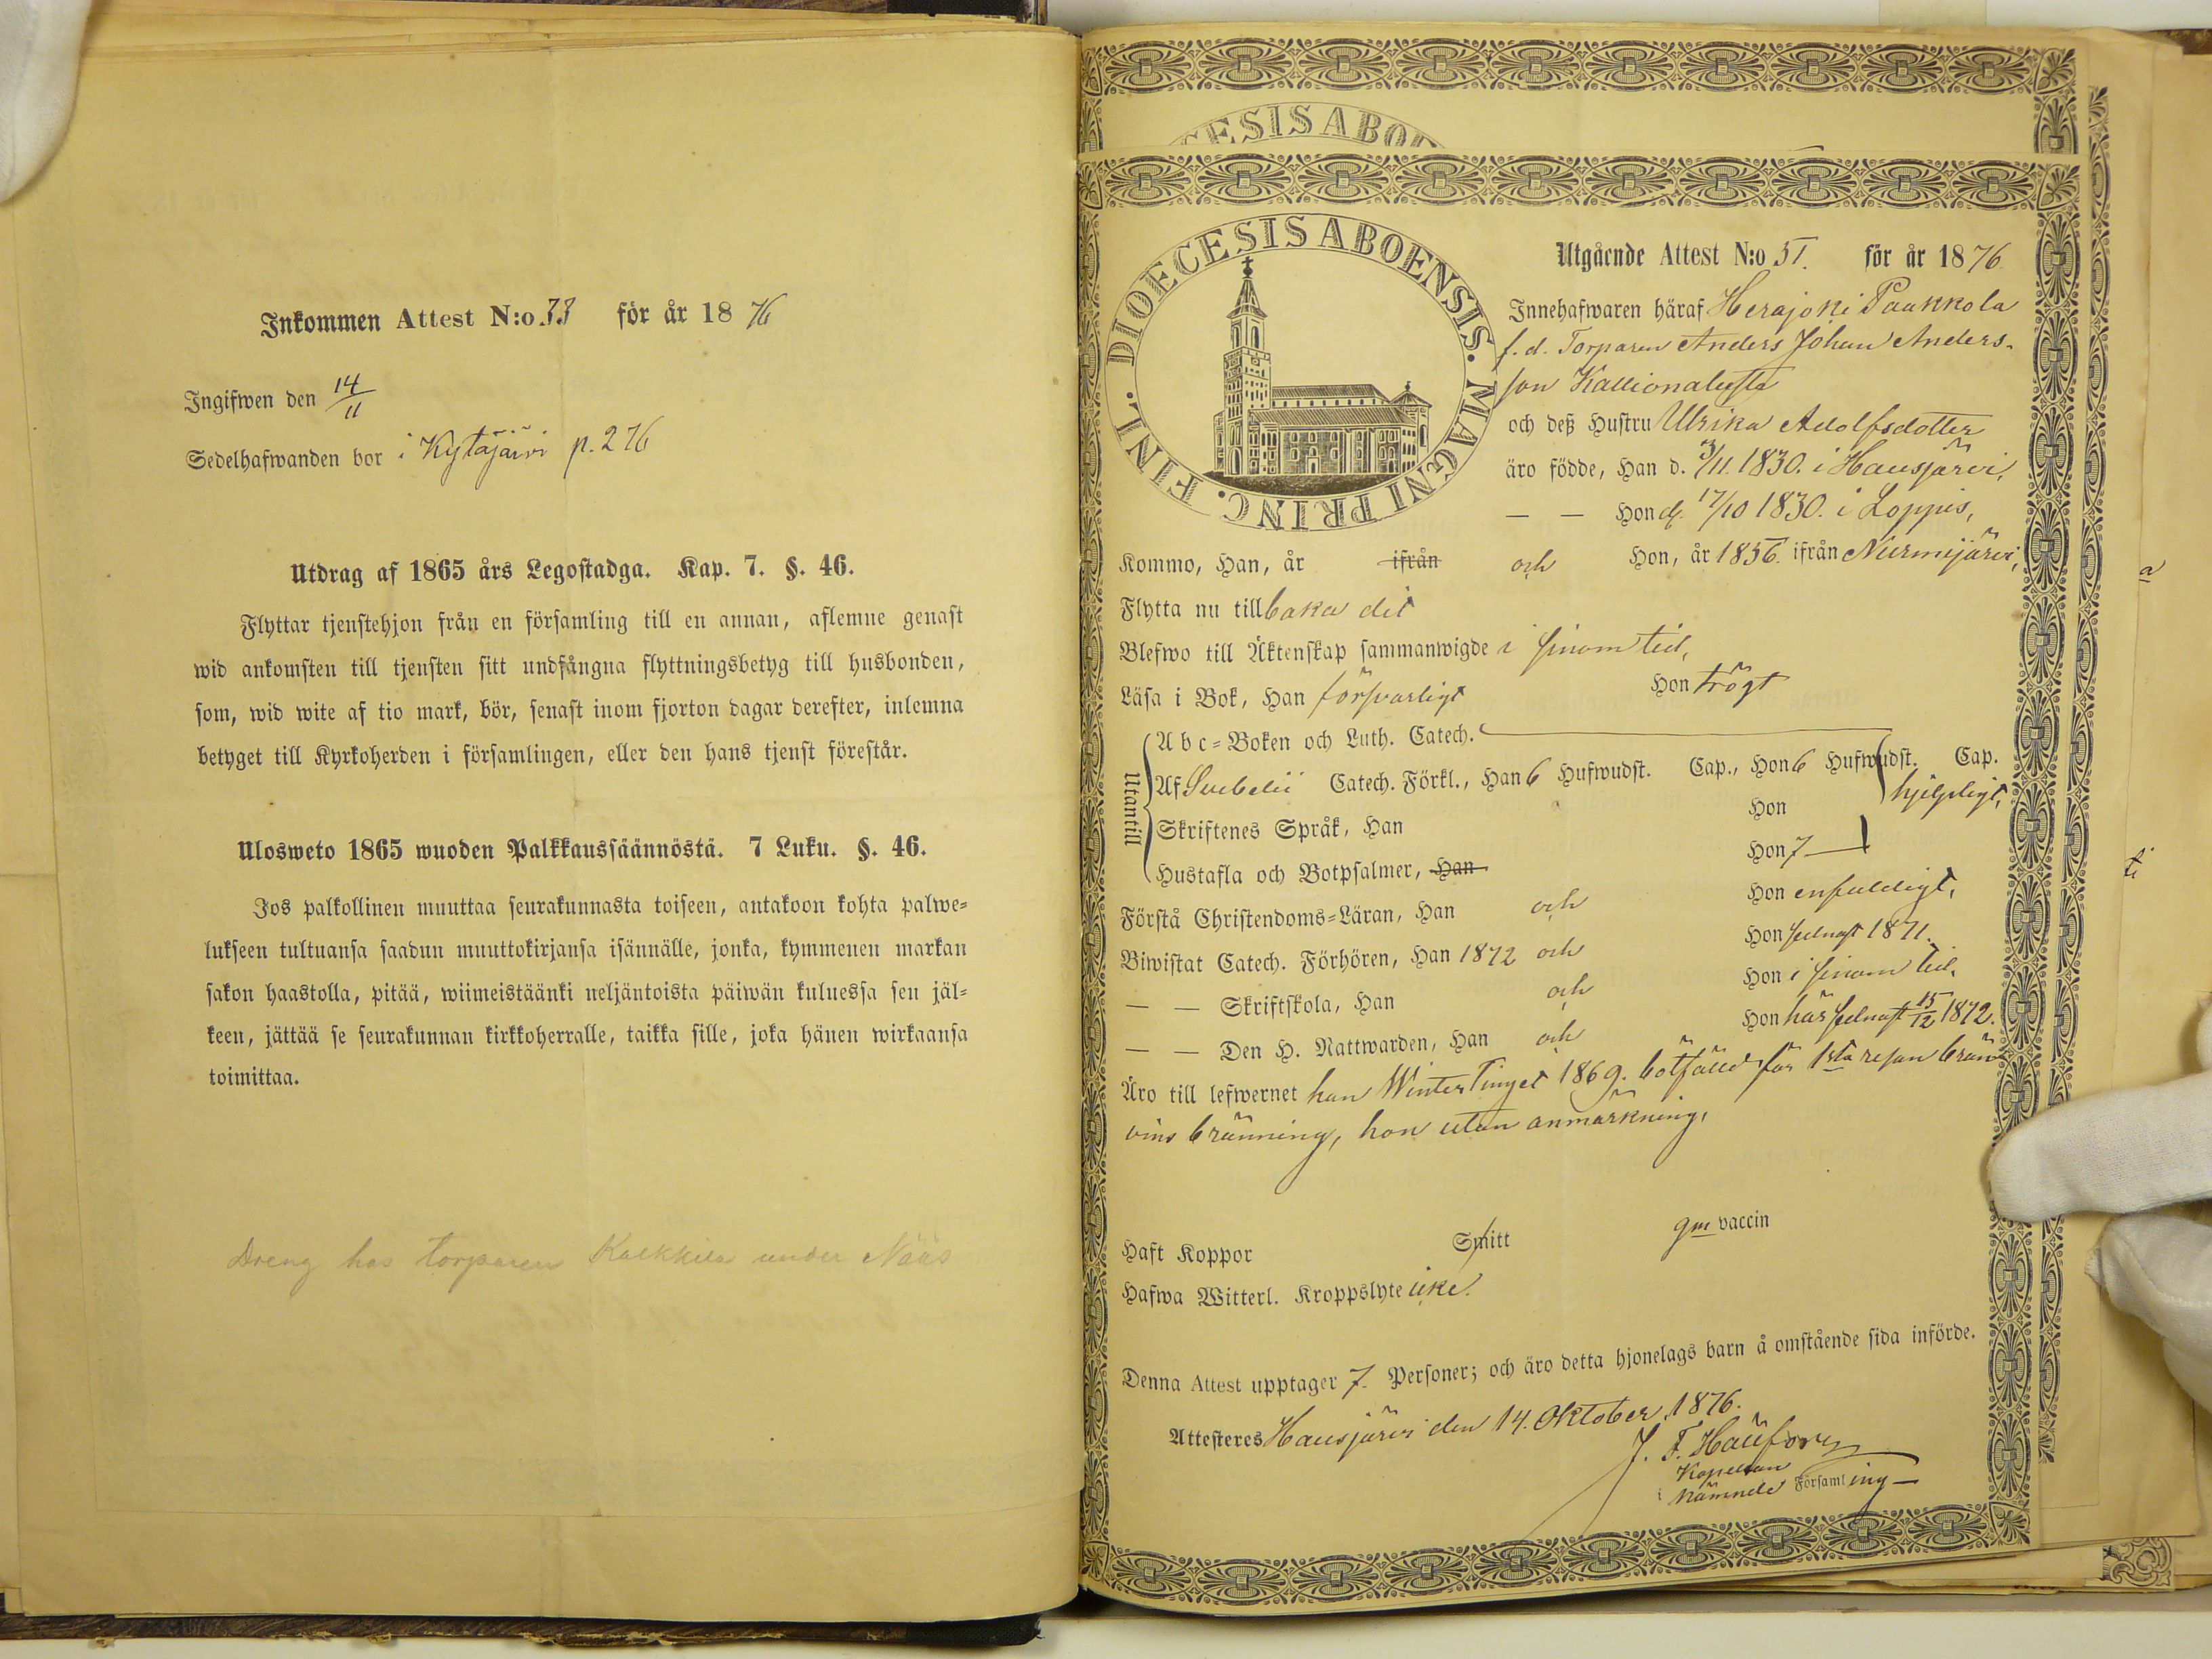 Inkommen Attest N:o 33 för år 1876
Ingifwen den 14/11
Sedelhafwanden bor i Kytäjärvi p. 276
Utdrag af 1865 års Legostadga. Kap. 7. §. 46.
Flyttar tjenstehjon från en församling till en annan, aflemne genast
wid ankomsten till tjensten sitt undfångna flyttningsbetyg till husbonden,
som, wid wite af tio mark, bör, senast inom fjorton dagar derefter, inlemna
betyget till Kyrkoherden i församlingen, eller den hans tjenst förestår.
Ulosweto 1865 wuoden Palkkaussäännöstä. 7 Luku. §. 46.
Jos palkollinen muuttaa seurakunnasta toiseen, antakoon kohta palwe=
lukseen tultuansa saadun muuttokirjansa isännälle, jonka, kymmenen markan
sakon haastolla, pitää, wiimeistäänki neljäntoista päiwän kuluessa sen jäl=
keen, jättää se seurakunnan kirkkoherralle, taikka sille, joka hänen wirkaansa
toimittaa.
Dreng hos torparen Kalkkila under Nääs
DIOECESIS ABOENSIS. MAGNI PRINC. FINL.
Utgående Attest N:o 51. för år 1876
Innehafwaren häraf Herajoki Paakkola
f.d. Torparen Anders Johan Anders-
son Kallionalusta
och deß Hustru Ulrika Adolfsdotter
äro födde, Han d. 3/11. 1830. i Hausjärvi,
— — Hon d. 17/10 1830. i Loppis,
Kommo, Han, år ifrån och Hon, år 1856. ifrån Nurmijärvi,
Flytta nu tillbaka dit
Blefwo till Äktenskap sammanwigde i sinom tid,
Läsa i Bok, Han försvarligt Hon trögt
Utantill
A b c=Boken och Luth. Catech.
Af Svebelii Catech. Förkl., Han 6 Hufwudst. Cap., Hon 6 Hufwudst. Cap.
hjelpligt,
Skriftenes Språk, Han Hon
Hustafla och Botpsalmer, Han Hon 7
Förstå Christendoms=Läran, Han och Hon enfaldigt,
Biwistat Catech. Förhören, Han 1872 och Hon sednast 1871.
— — Skriftskola, Han och Hon i sinom tid,
— — Den H. Nattwarden, Han och Hon här sednast 15/12 1872.
Äro till lefwernet han Winter Tinget 1869. bötfälld för 1sta resan brän
vins bränning, hon utan anmärkning,
Haft Koppor Smitt gm vaccin
Hafwa Witterl. Kroppslyte icke.
Denna Attest upptager 7. Personer; och äro detta hjonelags barn å omstående sida införde.
Attesteres Hausjärvi den 14. Oktober 1876.
J. F.
Kapellan
i nämnde Församling